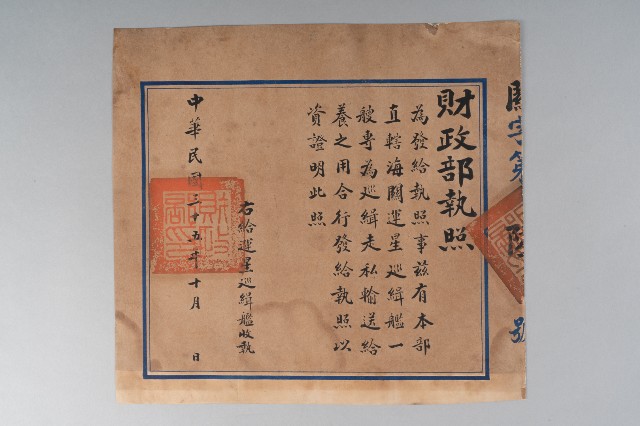 關字第
號
財政部執照
為發給執照事茲有本部
直轄海關運星巡緝艦一
艘專為巡緝走私輸送給
養之用合行發給執照以
資證明此照
右給運星巡緝艦收執
中華民國三十五年十月 日